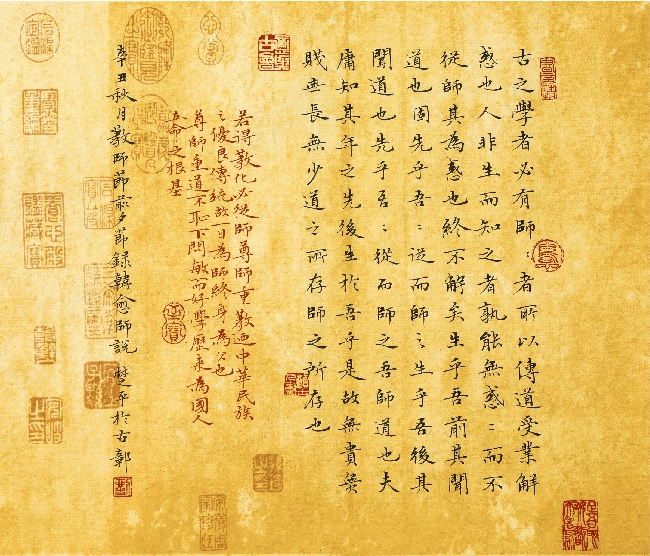 古之學者必有師〻者所以傳道受業解
惑也人非生而知之者孰能無惑〻而不
從師其為惑也終不解矣生乎吾前其聞
道也固先乎吾〻從而師之生乎吾後其
聞道也先乎吾〻從而師之吾師道也夫
庸知其年之先後生於吾乎是故無貴無
賤無長無少道之所存師之所存也
若得教化必從師尊師重教迺中華民族
之優良傳統故一日為師終身為父也
尊師重道不恥下問敏而好學歷來為國人
立命之根基
辛丑秋月教師節前夕節錄韓愈師說 楚平於古鄣